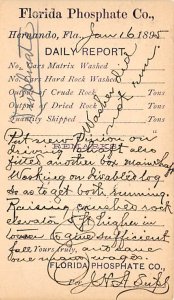 Florida Phosphate Co.,
Hernando, Fla., Jan 16 1895
DAILY REPORT.
No. Cars Matrix Washed
No. Cars Hard Rock Washed
Output of Crude Rock Tons
Output of Dried Rock Tons
Quantity Shipped Tons
Washer did
not run.
REMARKS:
Put new Pinion on
drive also
fitted another box Main shaft
Working on disabled log
so as to get both running.
Raising crushed rock
elevator ft higher in
to give sufficient
fall
Yours Truly,
one man wages.
FLORIDA PHOSPHATE CO.,